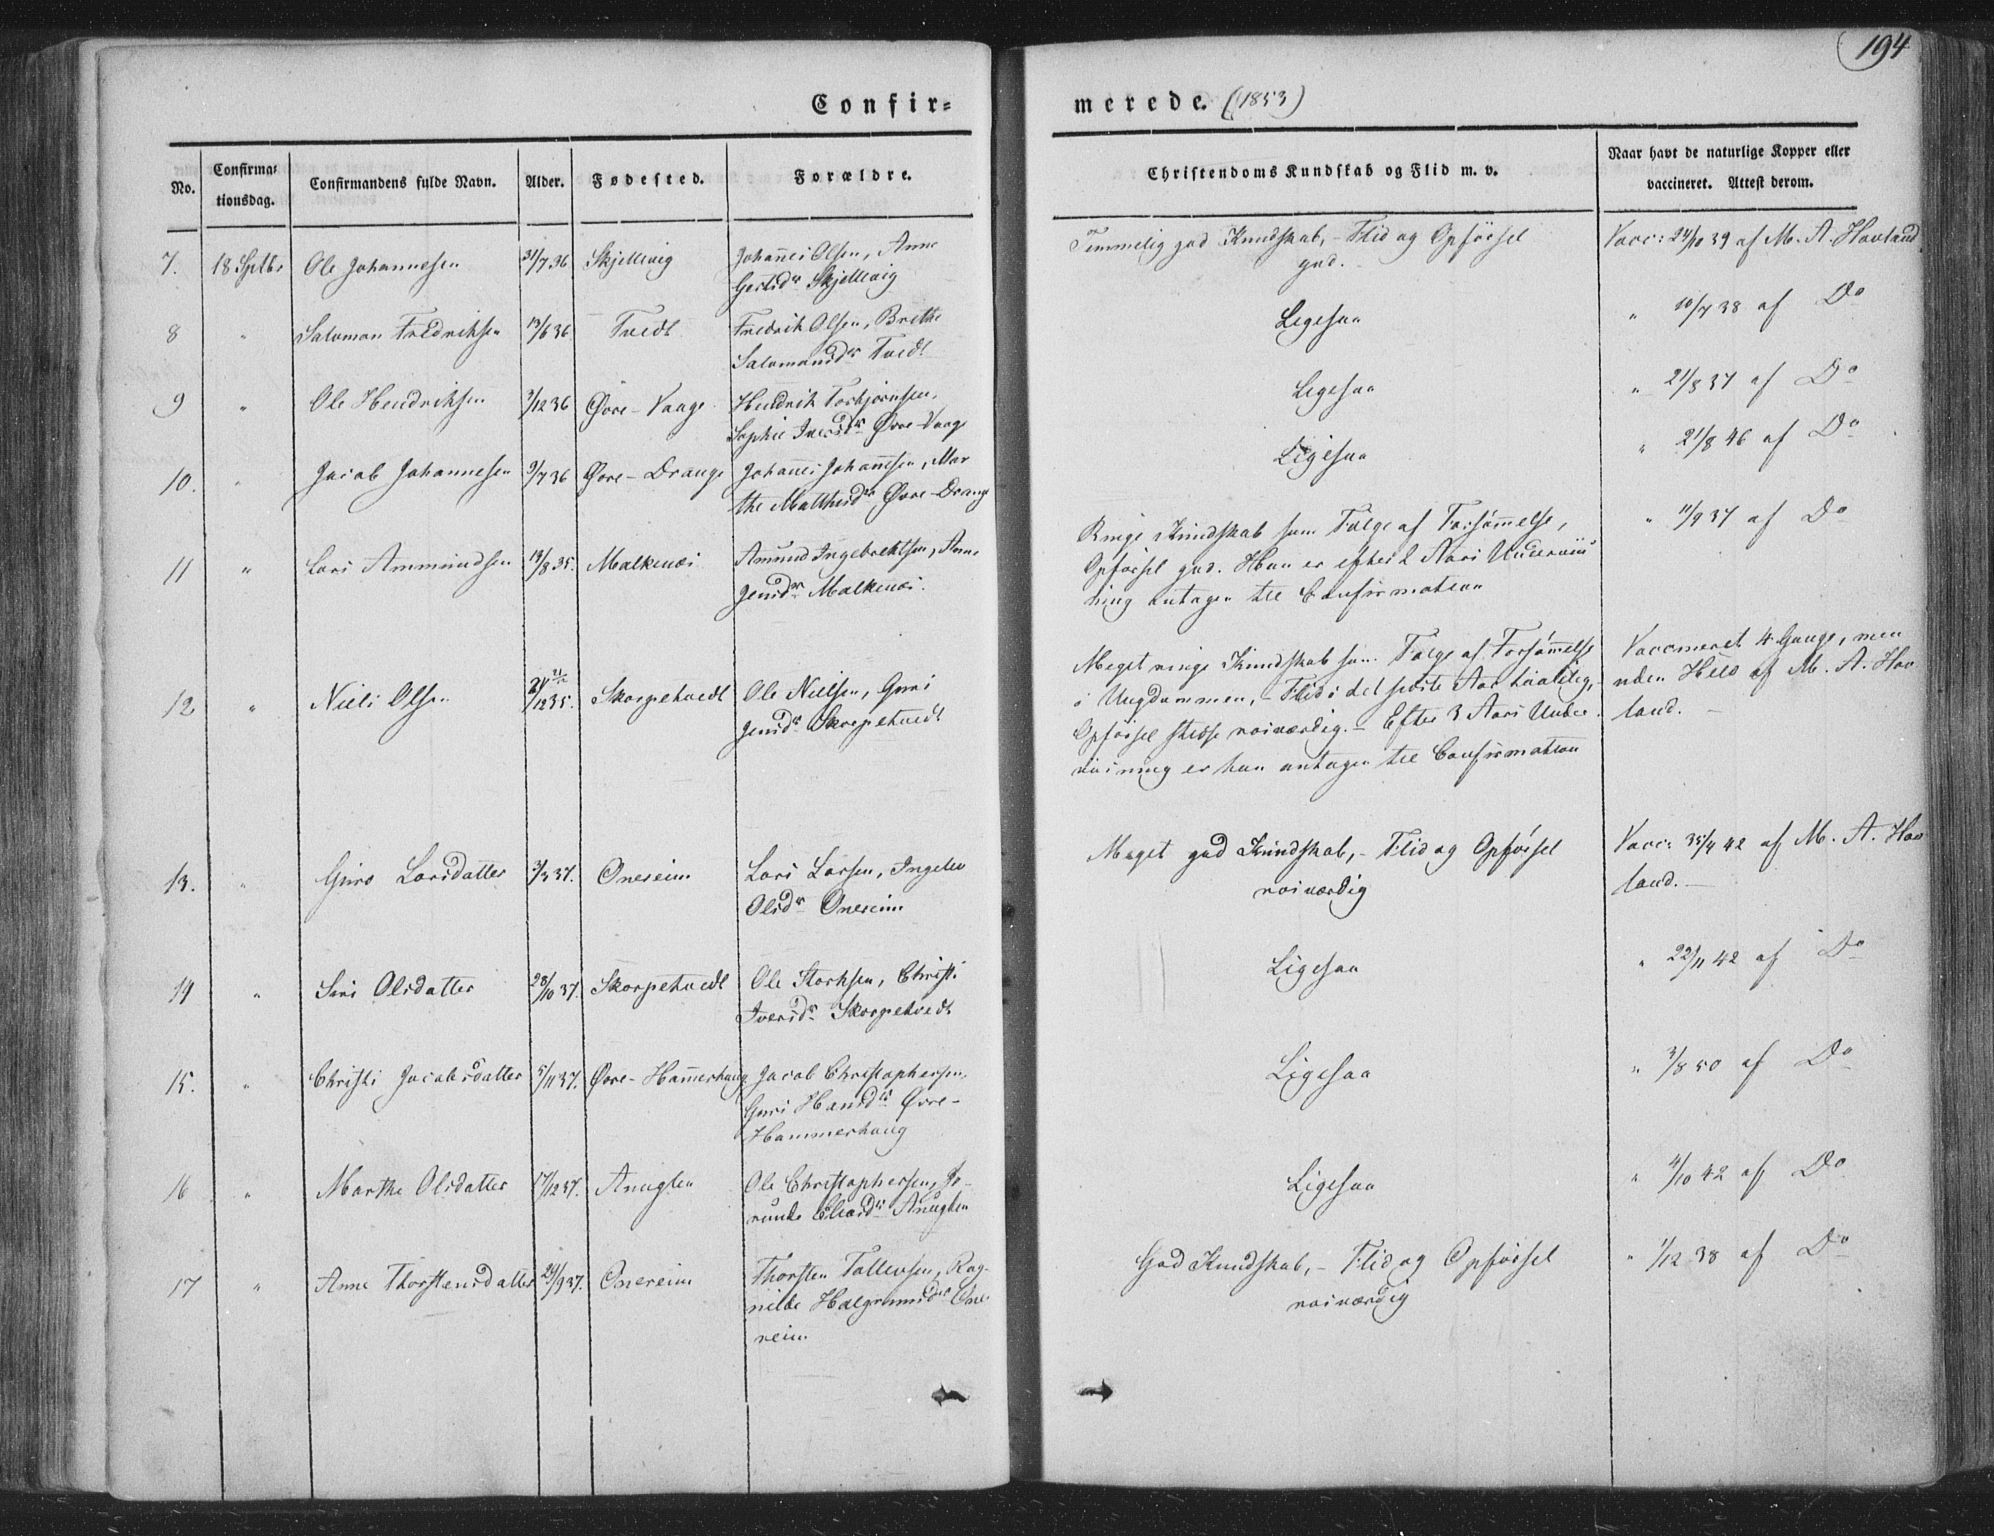 194
Confir=
merede. (1853)
No.
Confirma-
tionsdag.
Confirmandens fulde Navn.
Alder.
Fødested.
Forældre.
Christendoms Kundskab og Flid m. v.
Naar havt de naturlige Kopper eller
vaccineret. Attest derom.
7. 18 Septbr Ole Johannesen 31/7 36 Skjellevig Johanes Olsen, Anne
Gertsdr Skjellevig
Temmelig god Kundskab, – Flid og Opførsel
god.
Vacc: 24/10 39 af M. A. Hovland
8 " Salomon Fredriksen 13/6 36 Tvedt Fredrik Olsen, Brithe
Salomonsdr Tvedt
Ligesaa
" 10/7 38 af Do
9 " Ole Hendriksen 3/12 36 Øvre-Vaage Hendrik Torbjørnsen,
Sophie Iversdr Øvre-Vaage
Ligesaa
" 21/8 37 af Do
10. " Jacob Johannesen 9/7 36 Øvre-Drange Johanes Johansen, Mar
the Mathisdr Øvre-Drange
Ligesaa
" 21/8 46 af Do
11 " Lars Ammundsen 19/8 35. Malkenæs Amund Ingebrektsen, Anne
Jensdr Malkenæs.
Ringe Kundskab som Følge af Forsømmelse,
Opførsel god. Han er efter 2 Aars Undervis
ning antagen til Confirmation
" 11/9 37 af Do
12 " Niels Olsen /12 35. Skorpetvedt Ole Nielsen, Guri
Jensdr Skorpetvedt
Meget ringe Kundskab som Følge af Forsømmelse
i Ungdommen, – Flid i det sidste Aar taalelig,
Opførsel stedse roisværdig. – Efter 3 Aars Under
viisning er han antagen til Confirmation
Vaccineret 4 Gange, men
uden Held af M. A. Hov
land. –
13. " Guro Larsdatter 3/3 37. Onereim Lars Larsen, Ingelev
Olsdr Onereim
Meget god Kundskab, – Flid og Opførsel
roisværdig
Vacc: /4 42 af M. A. Hov
land. –
14 " Siri Olsdatter 28/10 37. Skorpetvedt Ole Storksen, Christi
Iversdr Skorpetvedt
Ligesaa
" 22/11 42 af Do
15. " Christi Jacobsdatter 5/11 37. Øvre-Hamerhaug Jacob Christophersen,
Guri Hansdr Øvre-
Hammerhaug
Ligesaa
" 3/8 50 af Do
16 " Marthe Olsdatter 17/12 37. Anuglen Ole Christophersen, Jo-
runde Anuglen
Ligesaa
" 4/10 42 af Do
17 " Anne Thorstensdatter 24/9 37. Onereim Thorsten Tollevsen, Rag-
nilde Halgrimsdr One
reim
God Kundskab, – Flid og Opførsel
roisværdig
" 1/12 38 af Do